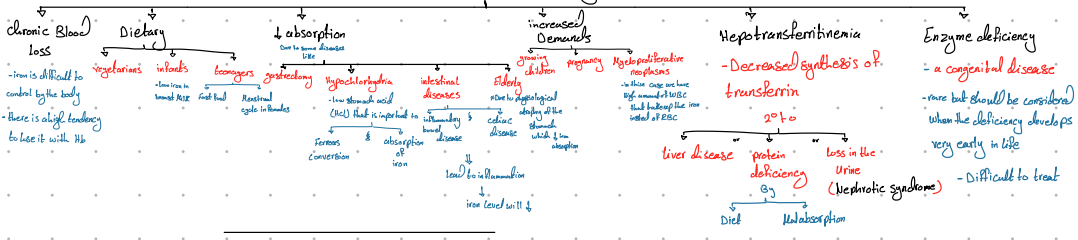 chronic Blood
loss
- iron is difficult to
control by the body
- there is a high tendency
to lose it with Hb
Dietary
vegetarians
infants
- low iron in
breast milk
teenagers
fast food
Menstrual
cycle in females
↓ absorption
Due to some diseases
like
gastrectomy
Hypochlorhydria
- low stomach acid
(HCl) that is important to
Ferrous
conversion
&
absorption
of
iron
intestinal
diseases
inflammatory
bowel
disease
&
celiac
disease
Lead to inflammation
iron level will ↓
Elderly
Due to physiological
atrophy of the
stomach
which ↓ iron
absorption
increased
Demands
growing
children
pregnancy
Myeloproliferative
neoplasms
- in this case we have
high amount of WBC
that take up the iron
instead of RBC
Hepotransferritinemia
- Decreased synthesis of
transferrin
2° to
liver disease
or
protein
deficiency
By
Diet
Malabsorption
or
loss in the
Urine
(Nephrotic syndrome)
Enzyme deficiency
- a congenital disease
- rare but should be considered
when the deficiency develops
very early in life
- Difficult to treat